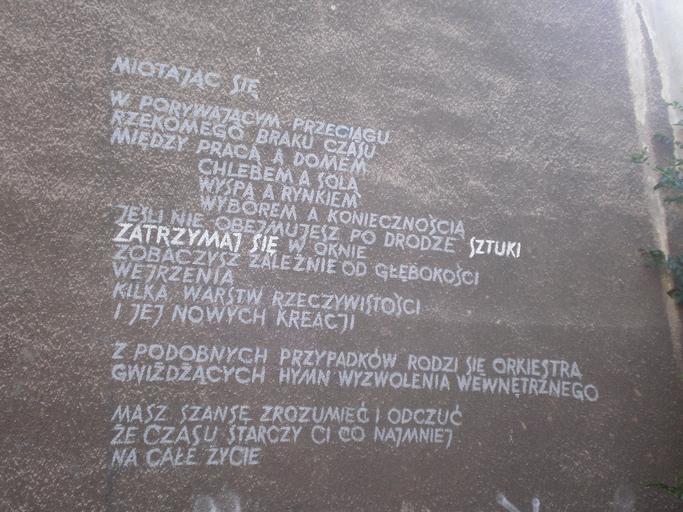 MIOTAJĄC SIĘ
W PORYWAJĄCYM PRZECIĄGU
RZEKOMEGO BRAKU CZASU
MIĘDZY PRACĄ A DOMEM
CHLEBEM A SOLĄ
WYSPĄ A RYNKIEM
WYBOREM A KONIECZNOŚCIĄ
JEŚLI NIE OBEJMUJESZ PO DRODZE SZTUKI
ZATRZYMAJ SIĘ W OKNIE
ZOBACZYSZ ZALEŻNIE OD GŁĘBOKOŚCI
WEJRZENIA
KILKA WARSTW RZECZYWISTOŚCI
I JEJ NOWYCH KREACJI
Z PODOBNYCH PRZYPADKÓW RODZI SIĘ ORKIESTRA
GWIŻDŻĄCYCH HYMN WYZWOLENIA WEWNĘTRZNEGO
MASZ SZANSĘ ZROZUMIEĆ I ODCZUĆ
ŻE CZASU STARCZY CI CO NAJMNIEJ
NA CAŁE ŻYCIE